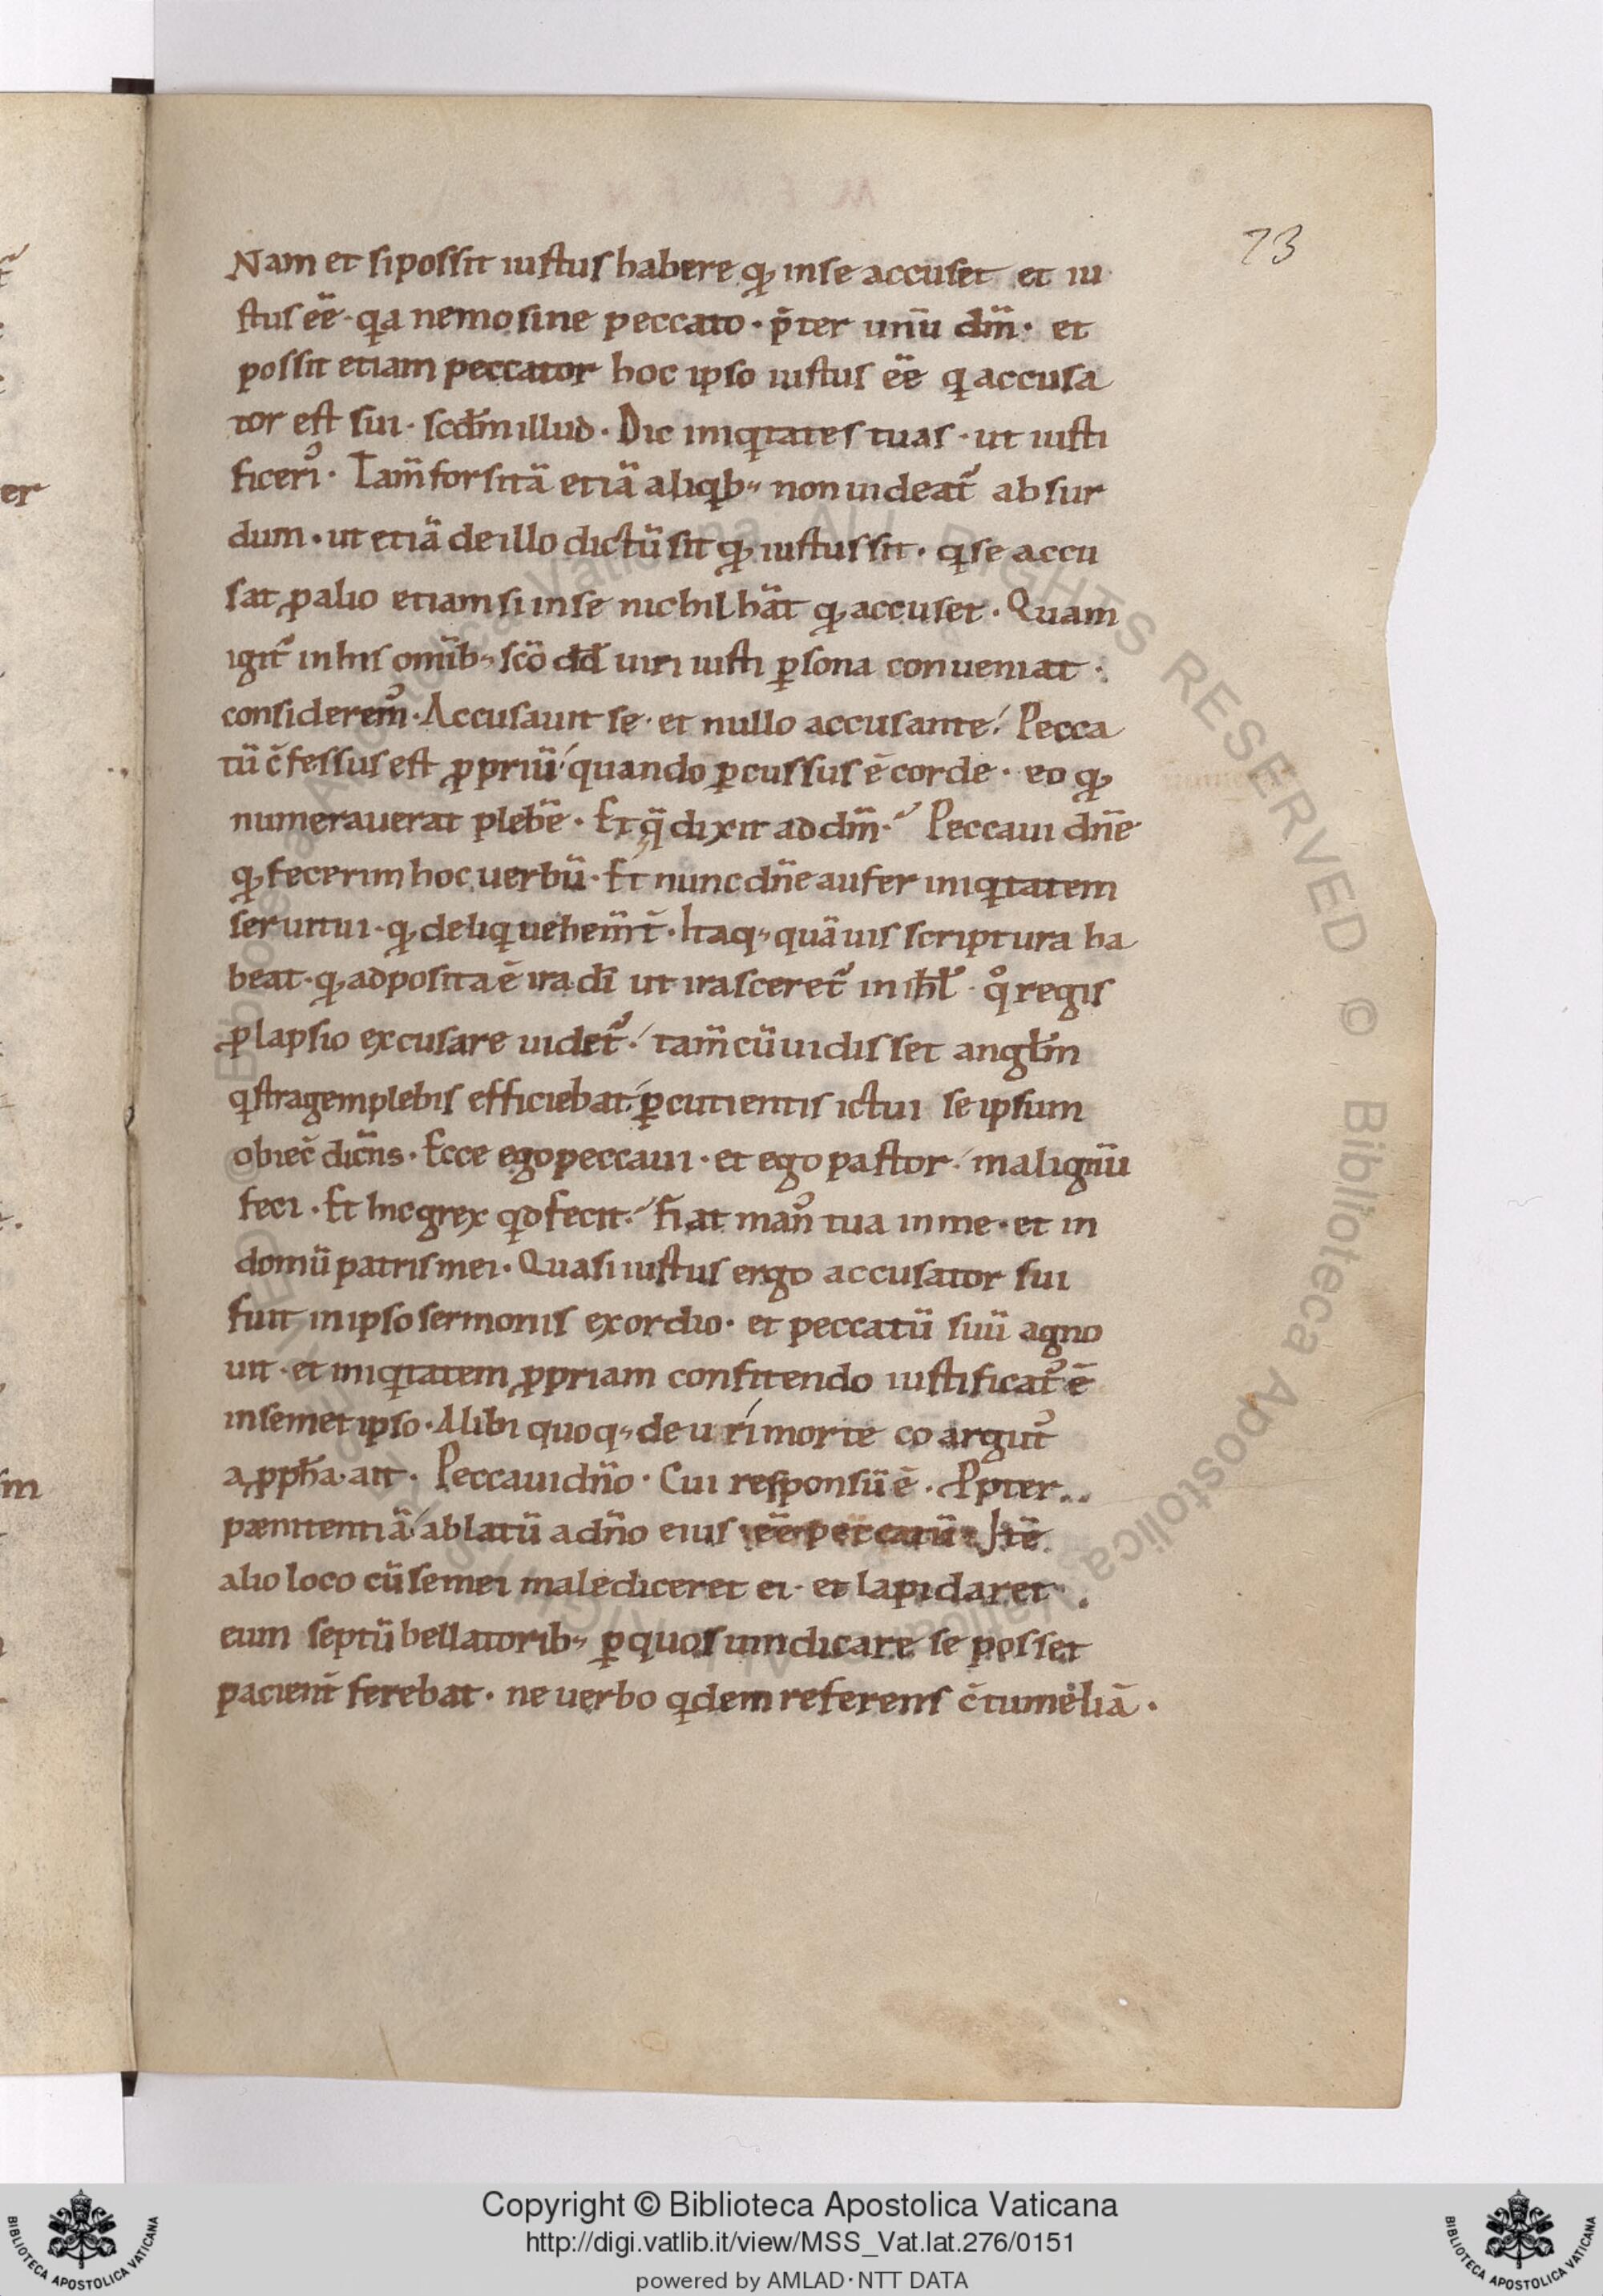 73
Nam et si possit iustus habere qđ in se accuset et iu
stus eē · qa nemo sine peccato · p̄ter unū dm̄ · et
possit etiam peccator hoc ipso iustus eē q accusa
tor est sui · scdm̄ illud · Dic iniqtates tuas · ut iusti
ficeri᷒ · Tam̄ forsitā etiā aliqb; non uideat᷒ absur
dum · ut etiā de illo dictū sit qđ iustus sit · q se accu
sat ꝓ alio etiam si in se nichil hāt qđ accuset · Quam
igit᷒ in his omīb; scō dd̄ uiri iusti ꝑsona conueniat ·
considerem᷒ · Accusauit se · et nullo accusante · Pecca
tū c̄fessus est ꝓpriū quando ꝑcussus ē corde · eo qđ
numerauerat plebē · Et q̄ dixit ad dm̄ · Peccaui dn̄e
qđ fecerim hoc uerbū · Et nunc dn̄e aufer iniqtatem
serui tui · qđ deliq uehem̄t̄ · Itaq; quāuis scriptura ha
beat · qđ adposita ē ira dī ut irasceret᷒ in ihl̄ · qͦ regis
ꝓlapsio excusare uidet᷒ · tam̄ cū uidisset anglm̄
q stragem plebis efficiebat · ꝑcutientis ictui se ipsum
obiec̄ dicn̄s · Ecce ego peccaui · et ego pastor · malignū
feci · Et hic grex qd fecit · Fiat man᷒ tua in me · et in
domū patris mei · Quasi iustus ergo accusator sui
fuit in ipso sermonis exordio · et peccatū suū agno
uit · et iniqtatem ꝓpriam confitendo iustificat᷒ ē
in semet ipso · Alibi quoq; de uri morte coarguit᷒
a ꝓpha · ait · Peccaui dn̄o · Cui responsū ē · Ꝓpter
pænitentiā ablatū a dn̄o eius eē peccatū · Itē
alio loco cū semei malediceret ei · et lapidaret
eum septū bellatorib; ꝑ quos uindicare se posset
pacient̄ ferebat · ne uerbo qdem referens c̄tumeliā ·
Copyright © Biblioteca Apostolica Vaticana
http://digi.vatlib.it/view/MSS_Vat.lat.276/0151
powered by AMLAD·NTT DATA